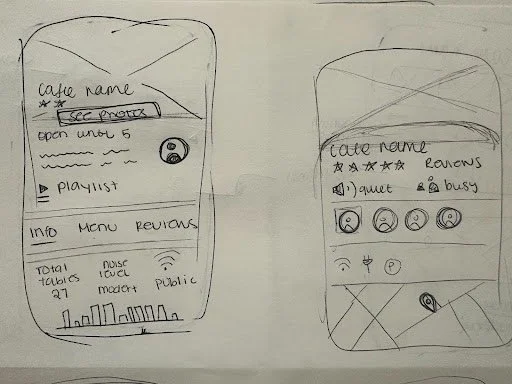 cafe name
see photos
open until 5
Playlist
Info Menu Reviews
TOTAL
tables
27
noise
level
modert
public
cafe name
Reviews
quiet
busy
P